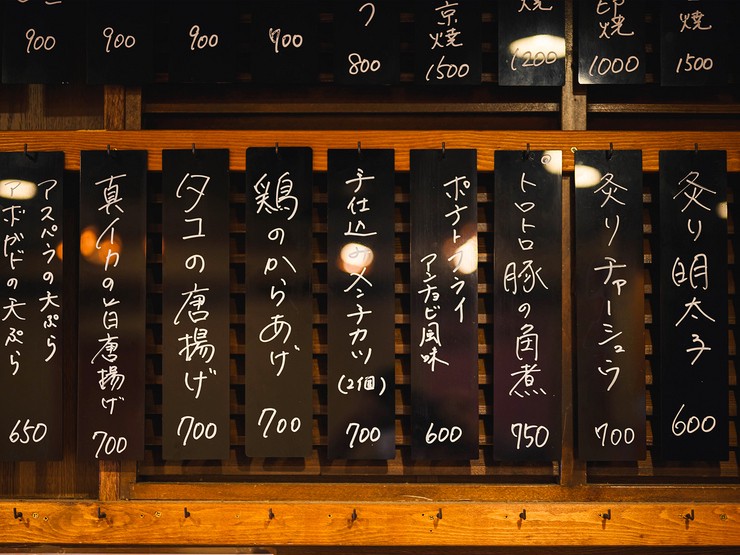 焼
1500
焼
1000
焼
1200
京焼
1500
つ
800
700
900
900
900
炙り明太子
600
炙りチャーシュウ
700
トロトロ豚の角煮
750
ポテトフライ
アンチョビ風味
600
手仕込みメンチカツ
(2個)
700
鶏のからあげ
700
タコの唐揚げ
700
真イカの旨唐揚げ
700
アスパラの天ぷら
アボガドの天ぷら
650